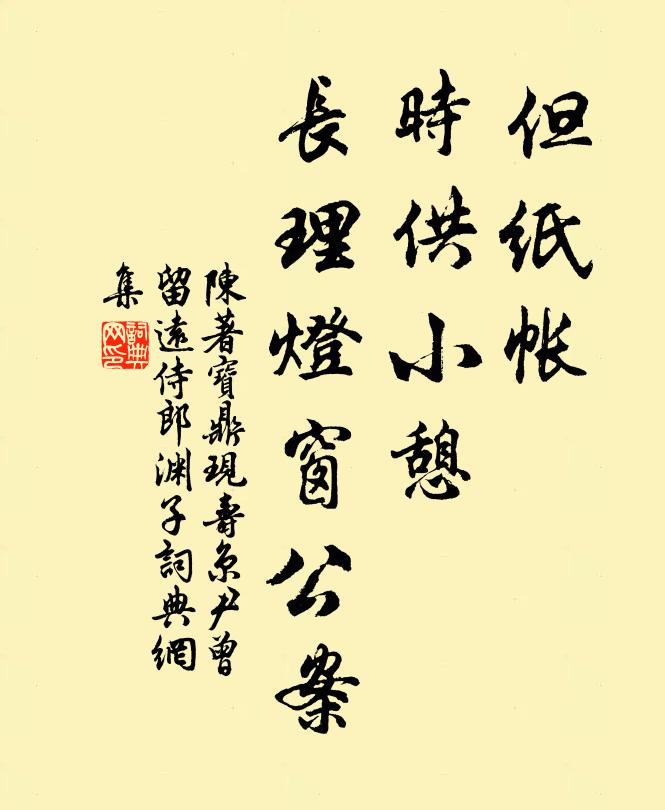 但紙帳
時供小憩
長理燈窗公案
陳著寶鼎現壽京尹曾
留遠侍郎淵子詞典網
集
詞典
网印